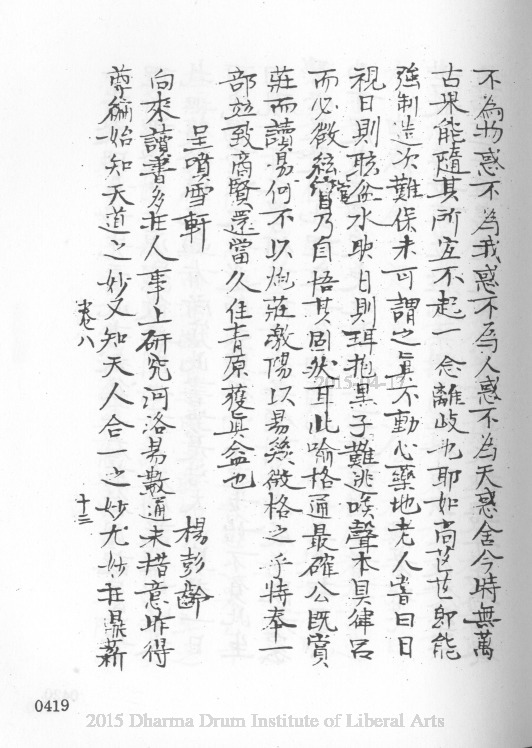 不為物惑不為我惑不為人惑不為天惑舍今時無萬
古果能隨其所宜不起一念離岐也耶如尚芒芒即能
強制造次難保未可謂之真不動心藥地老人嘗曰日
視日則眩盆水映日則珥抱黑子難逃喉聲本具律呂
而必徵絃管乃自悟其固然耳此喻格通最確公既賞
莊而讀易何不以炮莊激陽以易幾微格之乎特奉一
部並致商賢還當久住青原獲真益也
呈噴雪軒 楊彭齡
向來讀書多在人事上研究河洛易數通未措意昨得
尊論始知天道之妙又知天人合一之妙尤妙在鼎薪
卷八 十三
0419
2015-04-17
2015 Dharma Drum Institute of Liberal Arts